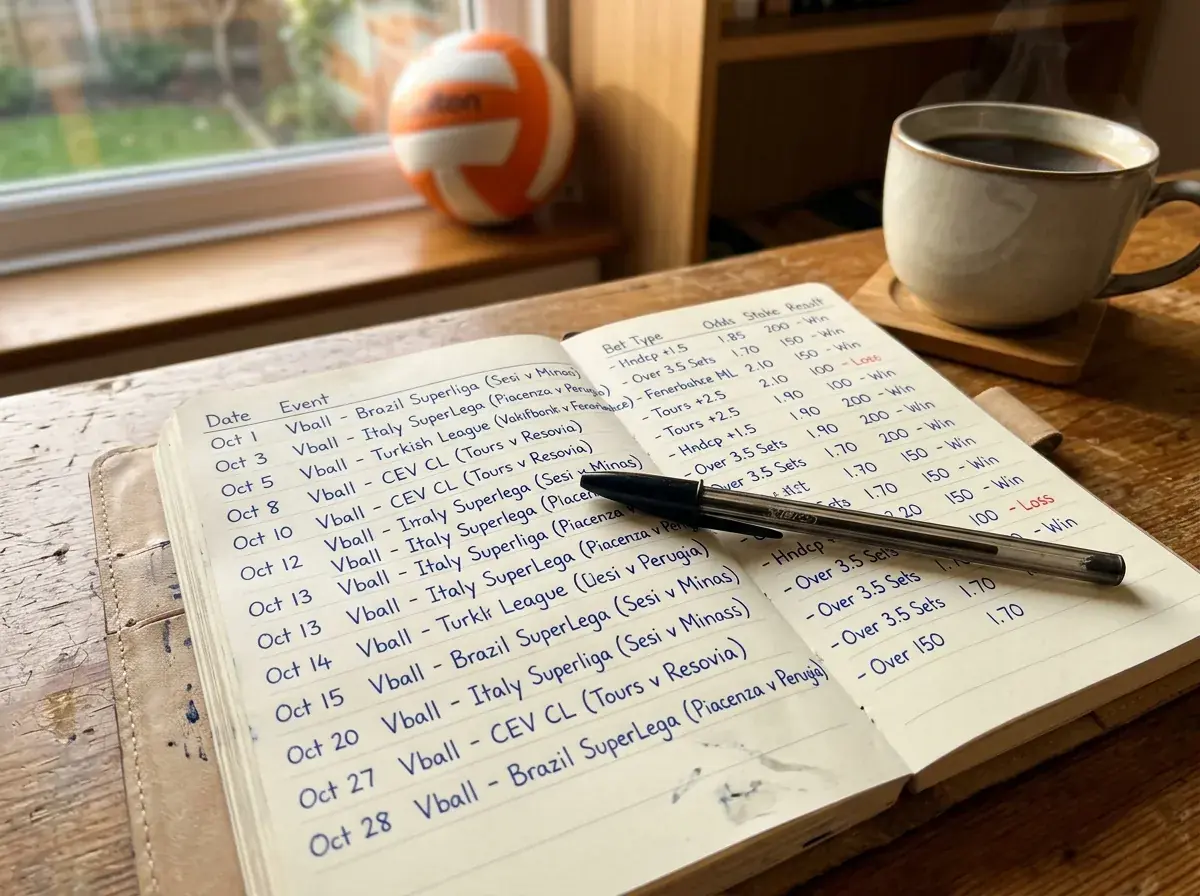 Date Event
Oct 1 Vball - Brazil Superliga (Sesi v Minas)
Oct 3 Vball - Italy SuperLega (Piacenza v Perugia)
Oct 5 Vball - Turkish League (Vakifbank v Fenerbahce)
Oct 8 Vball - CEV CL (Tours v Resovia)
Oct 10 Vball - CEV CL (Tours v Resovia)
Oct 12 Vball - Irraly Superlega (Sesi v Minas)
Oct 13 Vball - Italy Superlega (Piacen
Oct 13 Vball - Italy Superliga (Piacenza
Oct 14 Vball - Italy SuperLega (Piacenza v Peru
Oct 15 Vball - Turklr League (Uesi v Perugia)
Oct 20 Vball - Brazil SuperLega (Sesi v Minas)
Oct 27 Vball - Italy Superliga (Sesi v Minass)
Oct 28 Vball - CEV CL (Tours v Resovia)
Vball - Brazil SuperLega (Piacenza v Perugia)
Bet Type Odds Stake Result
- Hndcp +1.5 1.85 200 - Win
- Over 3.5 Sets 1.70 150 - Win
- Fenerbahce ML 2.10 150 - Win
- Tours +2.5 2.10 100 - Loss
- Tours +2.5 1.90 100 - Win
- Hndcp +1.5 1.90 200 - Win
- Over 3.5 Sets 1.90 200 - Win
Over 3.5 Sets 1.70 150 - Win
1.70 150 - Win
1.70 150 - Win
2.20 100 - Loss
- Hndcp - Win
- Over 3.5 Sets
- Over 3.5 Sets 1.70
- Over 3.5 Sets 1.70
- Over 150 1.70